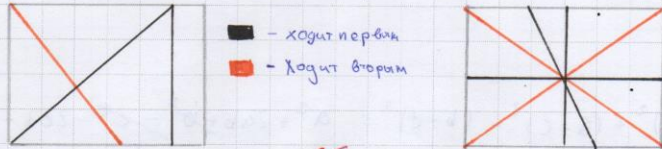 - ходит первым
- Ходит вторым